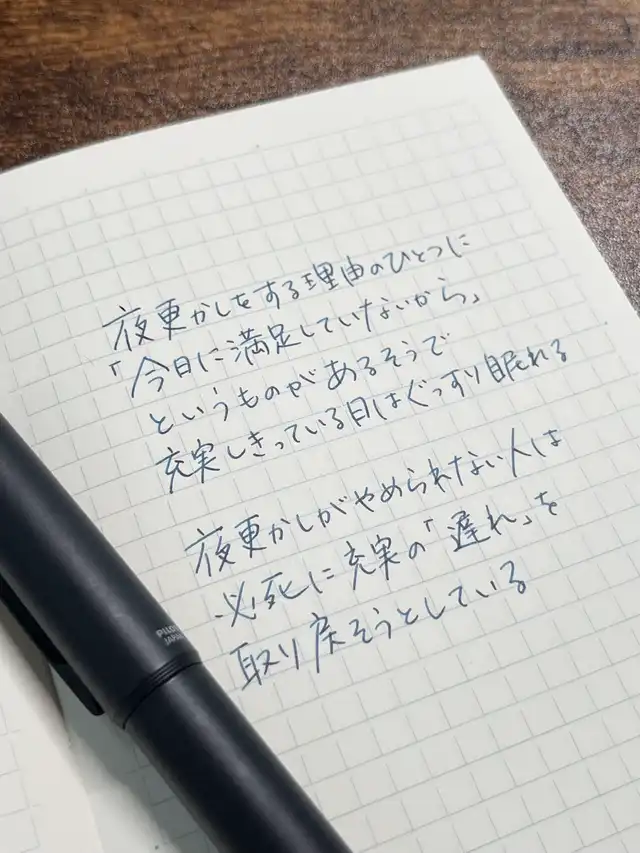 夜更かしをする理由のひとつに
「今日に満足していないから」
というものがあるそうで
充実しきっている日はぐっすり眠れる
夜更かしがやめられない人は
必死に充実の「遅れ」を
取り戻そうとしている
PILOT
JAPAN